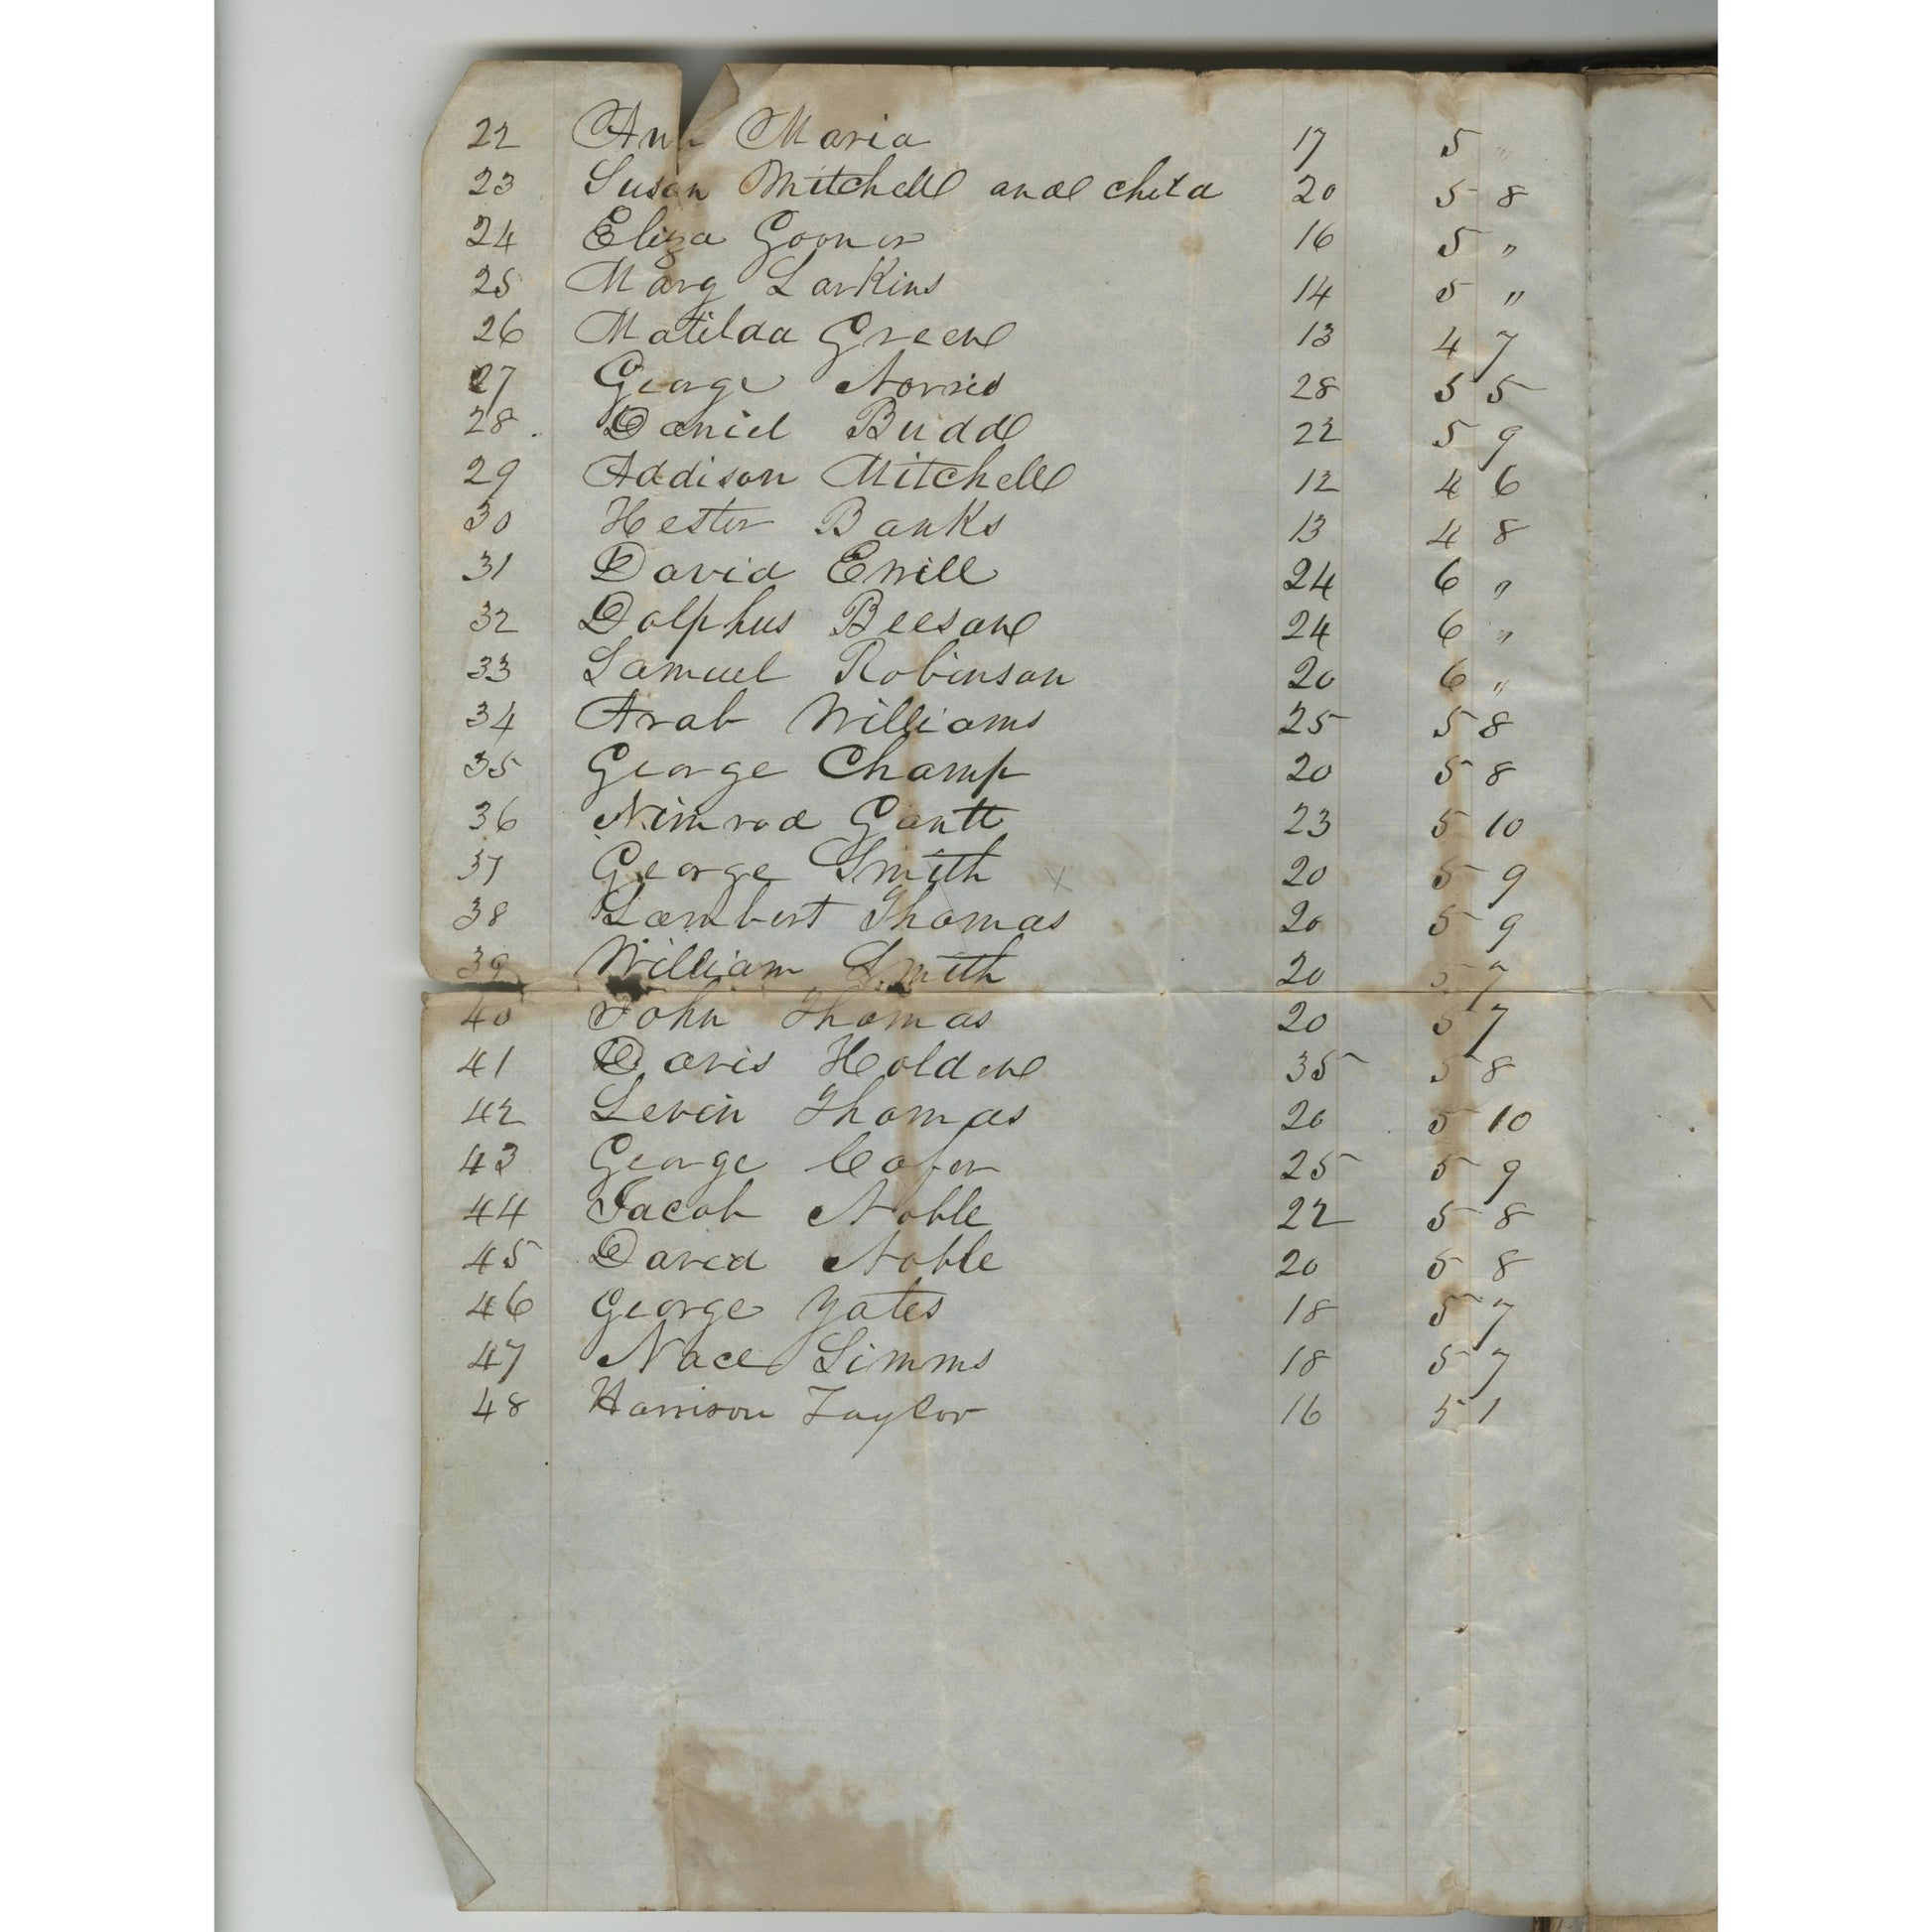 22 Ann Maria 17 5 "
23 Susan Mitchell and child 20 5 8
24 Eliza 16 5 "
25 Marg Larkins 14 5 "
26 Matilda Green 13 4 7
27 George Norris 28 5 5
28. Daniel Budd 22 5 9
29 Addison Mitchell 12 4 6
30 Hester Banks 13 4 8
31 David 24 6 "
32 Dolphus Beeson 24 6 "
33 Samuel Robinson 20 6 "
34 Arab Williams 25 5 8
35 George Champ 20 5 8
36 Nimrod Gantt 23 5 10
37 George Smith x 20 5 9
38 Lambert Thomas 20 5 9
39 William Smith 20 5 7
40 John Thomas 20 5 7
41 Davis Holden 35 5 8
42 Levin Thomas 20 5 10
43 George 25 5 9
44 Jacob Noble 22 5 8
45 David Noble 20 5 8
46 George Yates 18 5 7
47 Nace Simms 18 5 7
48 Harrison Taylor 16 5 1